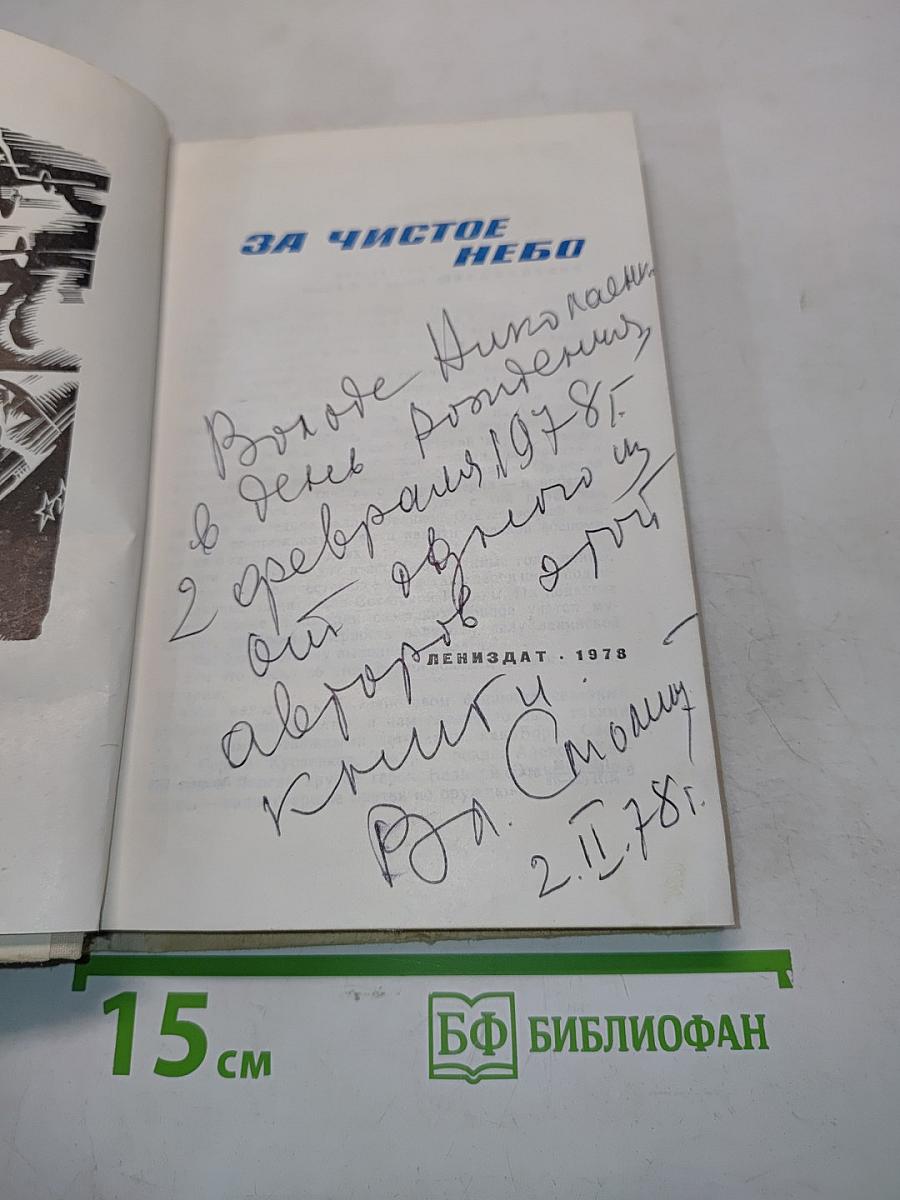 ЗА ЧИСТОЕ
НЕБО
Володе Николаенк
в день рождения,
2 февраля 1978 г.
от одного из
авторов этой
книги.
ЛЕНИЗДАТ · 1978
Вл.
2.II.78 г.
15 см
БФ БИБЛИОФАН